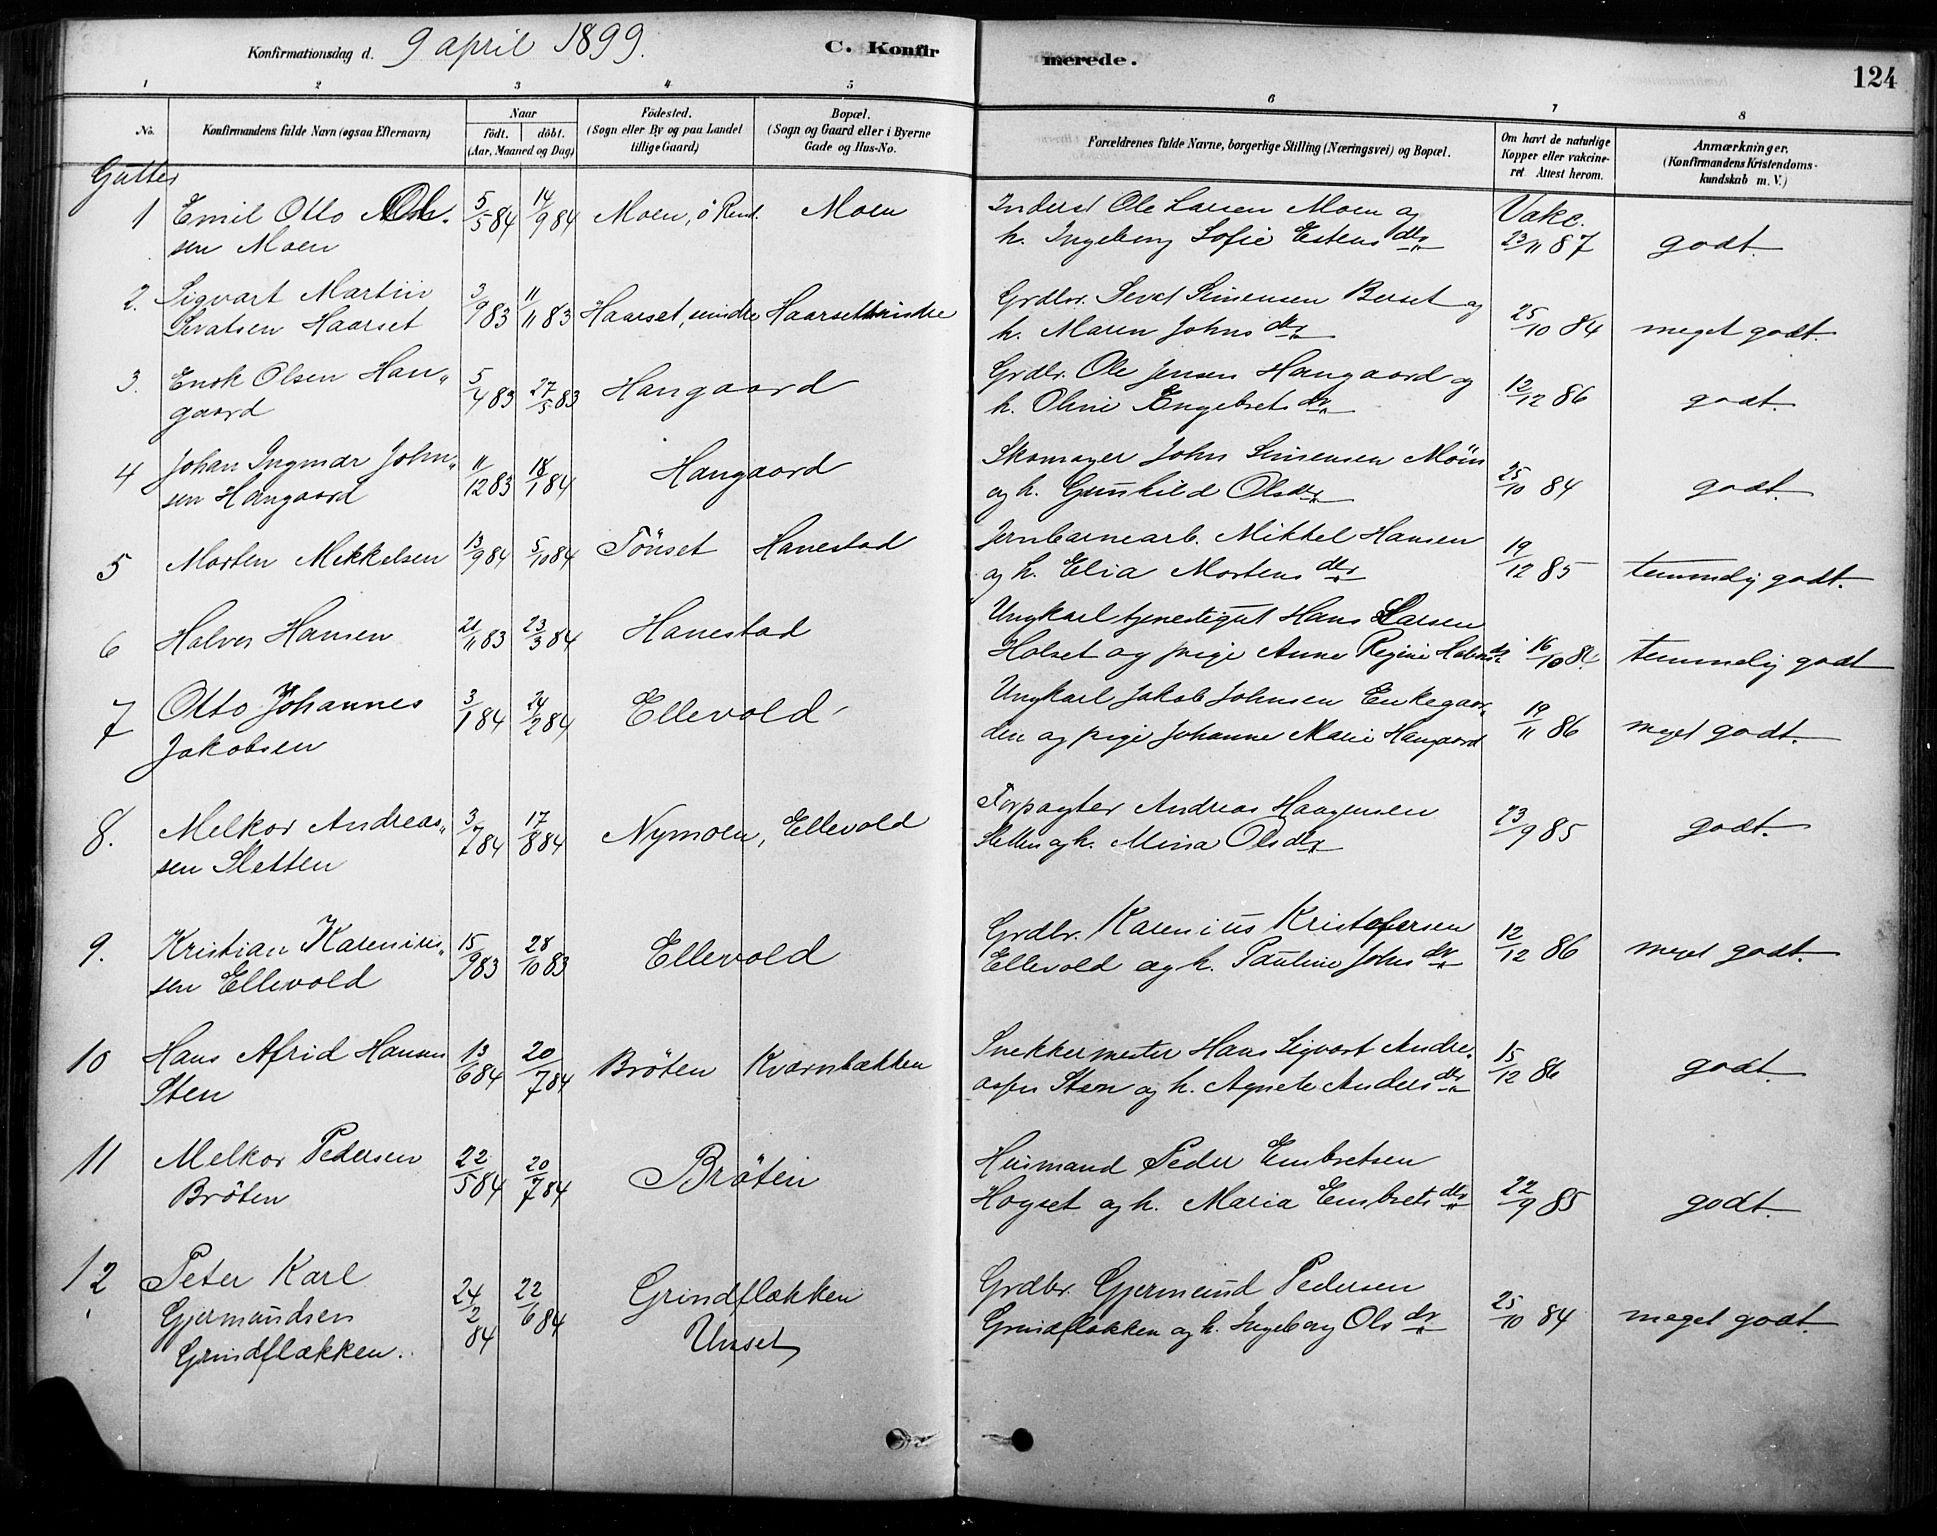 Konfirmationsdag d. 9 april 1899.
C. Konfirmerede.
124
1 2 3 4 5 6 7 8
No. Konfirmandens fulde Navn (ogsaa Efternavn) Naar født. døbt. (Aar, Maaned og Dag) Fødested. (Sogn eller By og paa Landet tillige Gaard) Bopæl. (Sogn og Gaard eller i Byerne Gade og Hus-No. Forældrenes fulde Navne, borgerlige Stilling (Næringsvei) og Bopæl. Om havt de naturlige Kopper eller vakcineret. Attest herom. Anmærkninger. (Konfirmandens Kristendomskundskab m. V.)
Gutter
1 Emil Otto Ols- 5/5 84 14/9 84 Moen, ö Rend. Moen Inderst Ole Larsen Moen og Vakc.
sen Moen h. Ingeborg Sofie Estensdtr 23/11 87 godt.
2. Sigvart Martin 3/9 83 11/11 83 Haarset, søndre Haarset søndre Grdbr. Sevat Simensen Berset og 25/10 84 meget godt.
Sivatsen Haarset h. Maren Johnsdtr
3. Enok Olsen Han„ 5/4 83 27/5 83 Hangaard Grdbr. Ole Jensen Hangaard og 12/12 86 godt.
gaard h. Oline Engebretsdtr
4 Johan Ingmar John„ 11/12 83 18/1 84 Hangaard Skomager John Simensen Moen 25/10 84 godt.
sen Hangaard og h. Gunhild Olsdtr
5 Morten Mikkelsen 13/9 84 5/10 84 Tönset Hanestad Jernbanearb. Mikkel Hansen 19/12 85 temmelig godt.
og h. Elia Mortensdtr
6 Halvor Hansen 21/11 83 23/3 84 Hanestad Ungkarl tjenestegut Hans Larsen
Holset og pige Anne Regine 16/10 84 temmelig godt
7 Otto Johannes 3/1 84 24/2 84 Ellevold Ungkarl Jakob Johnsen Enkegaar- 19/11 86 meget godt.
Jakobsen den og pige Johanne Marie Hangaard
8. Melkor Andreas„ 3/7 84 17/8 84 Nymoen, Ellevold Forpagter Andreas Haagensen 23/9 85 godt.
sen Sletten Sletten og h. Mina Olsdtr
9. Kristian Karenius„ 15/9 83 28/10 83 Ellevold Grdbr. Karenius Kristofersen 12/12 86 meget godt.
sen Ellevold Ellevold og h. Pauline Johnsdtr
10 Hans Afrid Hansen 13/6 84 20/7 84 Bröten Kværnbækken Snekkermester Hans Sigvart Andre- 15/12 86 godt.
Sten assen Sten og h. Agnete Andersdtr
11 Melkor Pedersen 22/5 84 20/7 84 Bröten Husmand Peder Embretsen
Bröten Hogset og h. Maria Embretsdtr 22/9 85 godt.
12 Peter Karl 24/2 84 22/6 84 Grindflækken Grdbr. Gjermund Pedersen 25/10 84 meget godt.
Gjermundsen Unset Grindflækken og h. Ingeborg Olsdtr
Grindflækken.